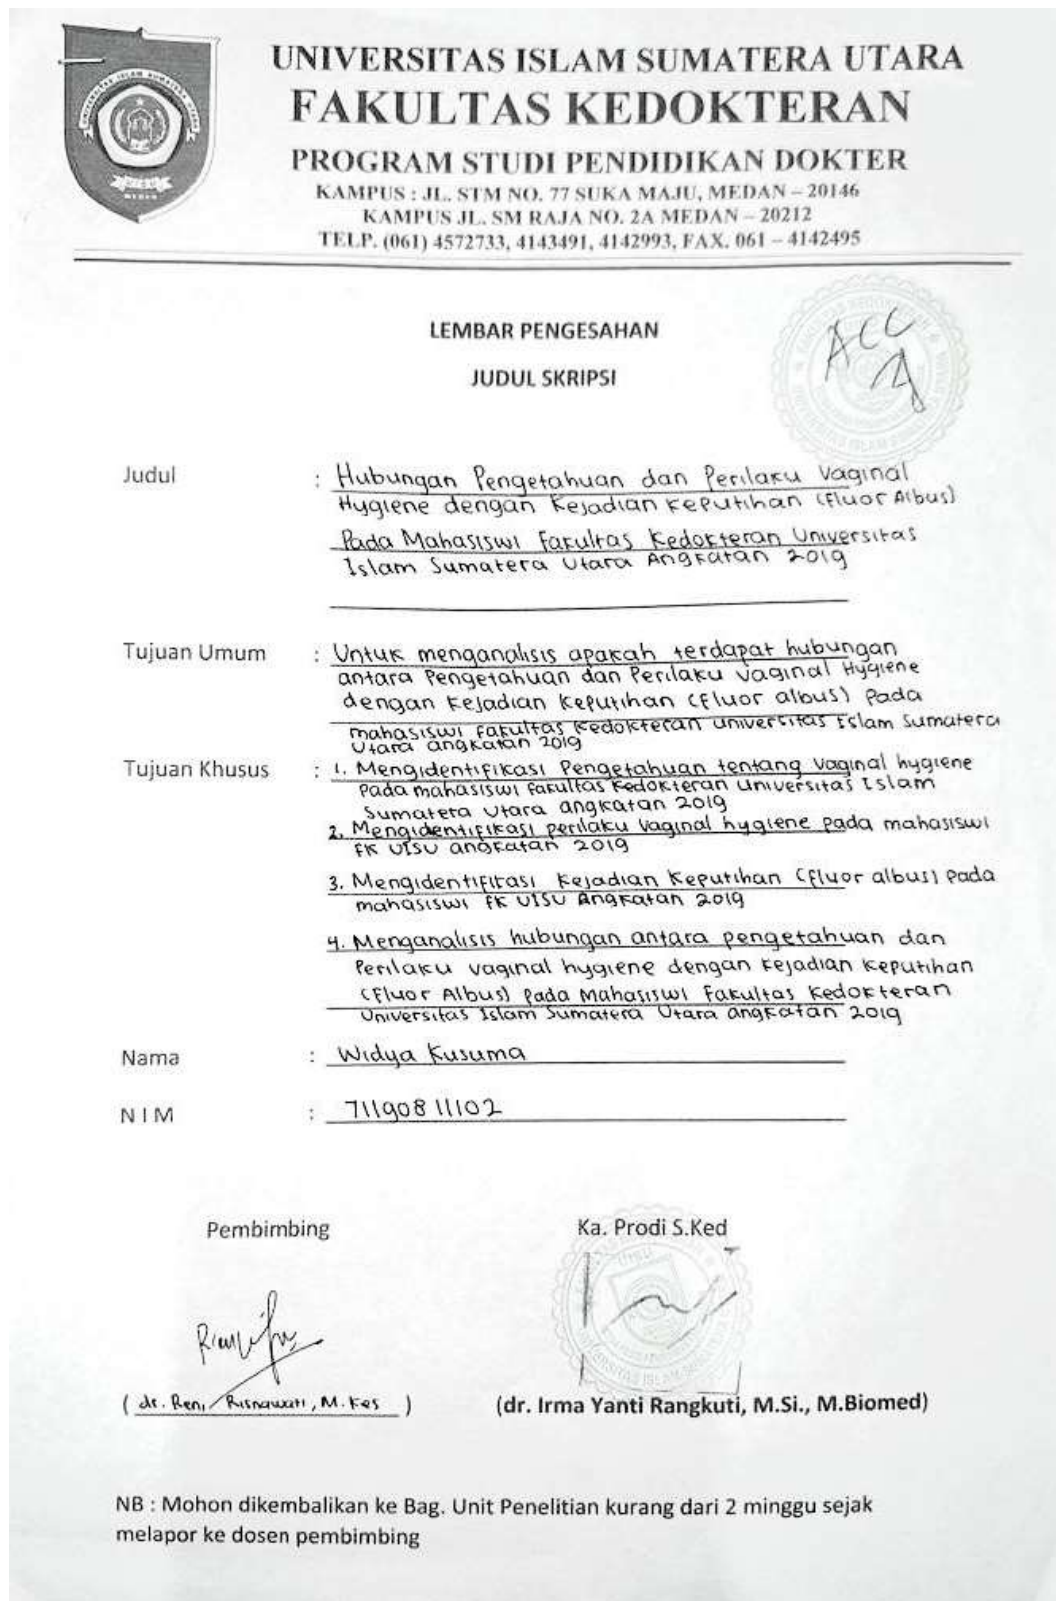 UNIVERSITAS ISLAM SUMATERA UTARA
FAKULTAS KEDOKTERAN
PROGRAM STUDI PENDIDIKAN DOKTER
KAMPUS : JL. STM NO. 77 SUKA MAJU, MEDAN – 20146
KAMPUS JL. SM RAJA NO. 2A MEDAN – 20212
TELP. (061) 4572733, 4143491, 4142993, FAX. 061 – 4142495
UNIVERSITAS ISLAM SUMATERA UTARA
UISU
MEDAN
LEMBAR PENGESAHAN
JUDUL SKRIPSI
ACC
Judul : Hubungan Pengetahuan dan Perilaku Vaginal
Hygiene dengan Kejadian Keputihan (Fluor Albus)
Pada Mahasiswi Fakultas Kedokteran Universitas
Islam Sumatera Utara Angkatan 2019
Tujuan Umum : Untuk menganalisis apakah terdapat hubungan
antara Pengetahuan dan Perilaku Vaginal Hygiene
dengan Kejadian Keputihan (Fluor albus) Pada
mahasiswi Fakultas Kedokteran Universitas Islam Sumatera
Utara angkatan 2019
Tujuan Khusus : 1. Mengidentifikasi Pengetahuan tentang Vaginal hygiene
Pada mahasiswi Fakultas Kedokteran Universitas Islam
Sumatera Utara angkatan 2019
2. Mengidentifikasi perilaku Vaginal hygiene pada mahasiswi
FK UISU angkatan 2019
3. Mengidentifikasi Kejadian Keputihan (fluor albus) pada
mahasiswi FK UISU Angkatan 2019
4. Menganalisis hubungan antara pengetahuan dan
Perilaku vaginal hygiene dengan kejadian Keputihan
(Fluor Albus) Pada Mahasiswi Fakultas Kedokteran
Universitas Islam Sumatera Utara angkatan 2019
Nama : Widya Kusuma
NIM : 71190811102
Pembimbing Ka. Prodi S.Ked
(dr. Reni Risnawati, M.Kes) (dr. Irma Yanti Rangkuti, M.Si., M.Biomed)
NB : Mohon dikembalikan ke Bag. Unit Penelitian kurang dari 2 minggu sejak
melapor ke dosen pembimbing